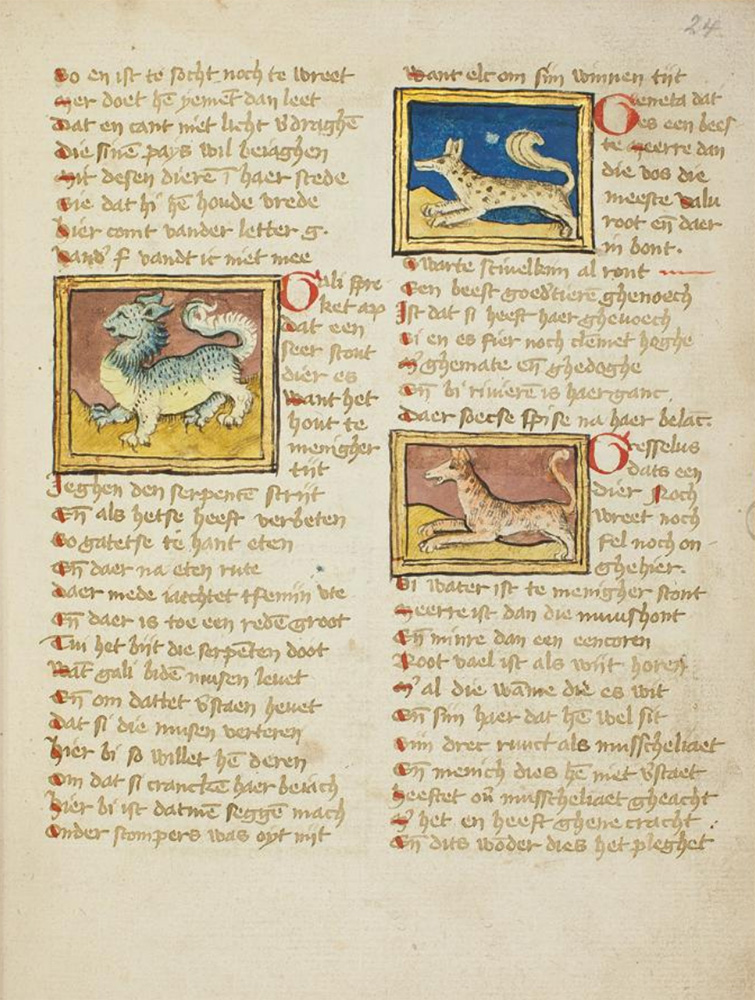 24
So en ist te socht noch te wreet
Mer doet hē yemēt dan leet
Dat en cant niet licht v̄draghē
Die sinē pays wil beiaghen
Mit desen dierē ī haer stede
Sie dat hi hē houde vrede
Hier comt vander letter g.
Vand' f vandt ic niet mee
Gali spre
ket ap
dat een
seer stout
dier es
Want het
hout te
menigher
tijt
Jeghen den serpentē strijt
En̄ als hetse heeft verbeten
So gatetse te hant eten
En̄ daer na eten rute
Daer mede iachtet tfenijn vte
En̄ daer is toe een redē groot
Twi het bijt die serpēten doot
Wāt gali bidē musen leuet
En̄ om dattet v̄staen heuet
Dat si die musen verteren
Hier bi so willet hē deren
Om dat si cranckē haer beiach
Hier bi ist datmē seggē mach
Onder stompers was oyt nijt
Want elc om sijn winnen tijt
Geneta dat
es een beest
te meerre dan
die vos die
meeste valu
root en̄ daer
in bont.
Swarte stivelkijn al ront
Een beest goedtierē ghenoech
Ist dat si heeft haer gheuoech
Si en es fier noch clemet hoghe
M' ghemate en̄ ghedoghe
En̄ bi riuierē is haer ganc
Daer soecse spise na haer belāc.
Gesselus
dats een
dier noch
wreet noch
fel noch on
ghehier.
Bi water ist te menigher stont
Meerre ist dan die muushont
En̄ minre dan een eencoren
Root vael ist als wijt horen
M' al die wāme die es wit
En̄ sijn haer dat hē wel sit
Sijn drec ruuct als musscheliaet
En̄ menich dies hē niet v̄staet
Heeftet ou̅ musscheliaet gheacht
M' het en heeft ghene cracht
En̄ dits woder dies het pleghet